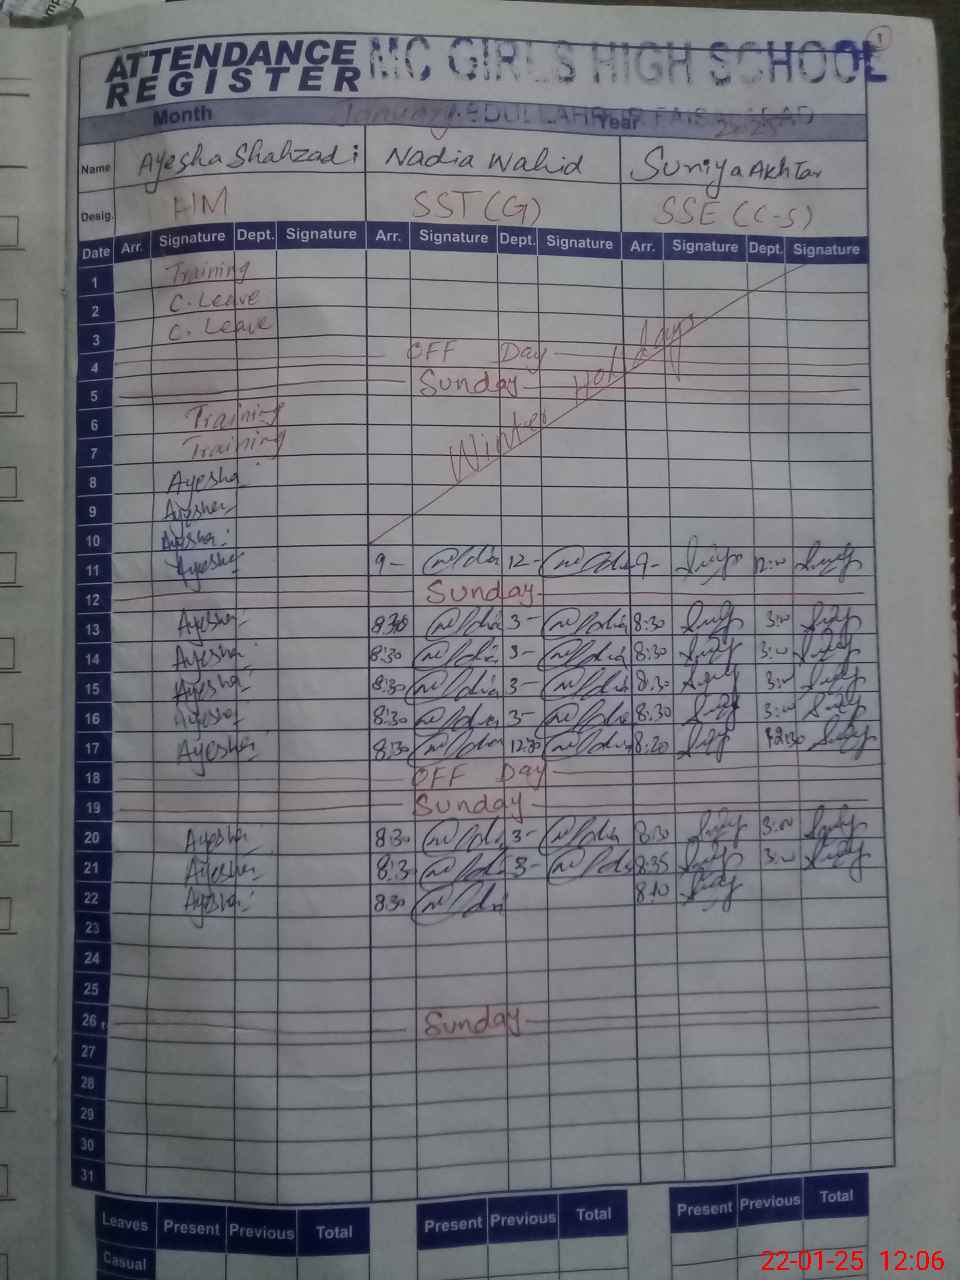 ATTENDANCE REGISTER MC GIRLS HIGH SCHOOL 1
Month January ABDULLAHPUR FAISALABAD Year 2025
Name Ayesha Shahzadi Nadia Wahid Suniya Akhtar
Desig. HM SST (G) SSE (C-S)
Date Arr. Signature Dept. Signature Arr. Signature Dept. Signature Arr. Signature Dept. Signature
1 Training
2 C. Leave
3 C. Leave
4 OFF Day
5 Sunday
Winter Holidays
6 Training
7 Training
8 Ayesha
9 Ayesha
10 Ayesha
11 Ayesha 9- 12- 9- 12:00
12 Sunday
13 Ayesha 8:30 3- 8:30 3:00
14 Ayesha 8:30 3- 8:30 3:00
15 Ayesha 8:30 3- 8:30 3:00
16 Ayesha 8:30 3- 8:30 3:00
17 Ayesha 8:30 12:30 8:20 12:30
18 OFF Day
19 Sunday
20 Ayesha 8:30 3- 8:30 3:00
21 Ayesha 8:3 3- 8:35 3:00
22 Ayesha 830 8:10
23
24
25
26 Sunday
27
28
29
30
31
Leaves Present Previous Total Present Previous Total Present Previous Total
Casual
22-01-25 12:06